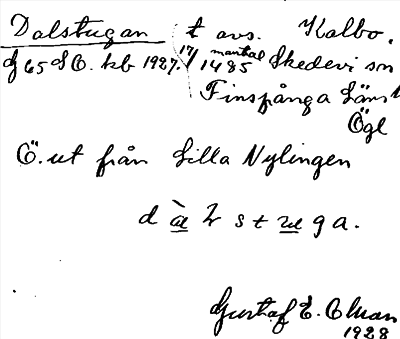 Dalstugan t avs. Kalbo,
J 65 S O. kb 1927. 17/1485 mantal Skedevi sn
Finspånga Läns h
Ögl
Ö. ut från Lilla Nylingen
Gustaf E. Olman
1928